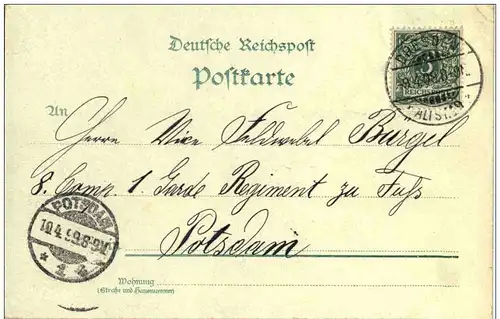 Deutsche Reichspost
Postkarte
DRESDEN
ALTST. 19
5
REICHSPOST
An
Herrn Vice Feldwebel Burgel
8. Comp. 1. Garde Regiment zu Fuß
Potsdam
POTSDAM
10.4.99.
Wohnung
(Straße und Hausnummer)